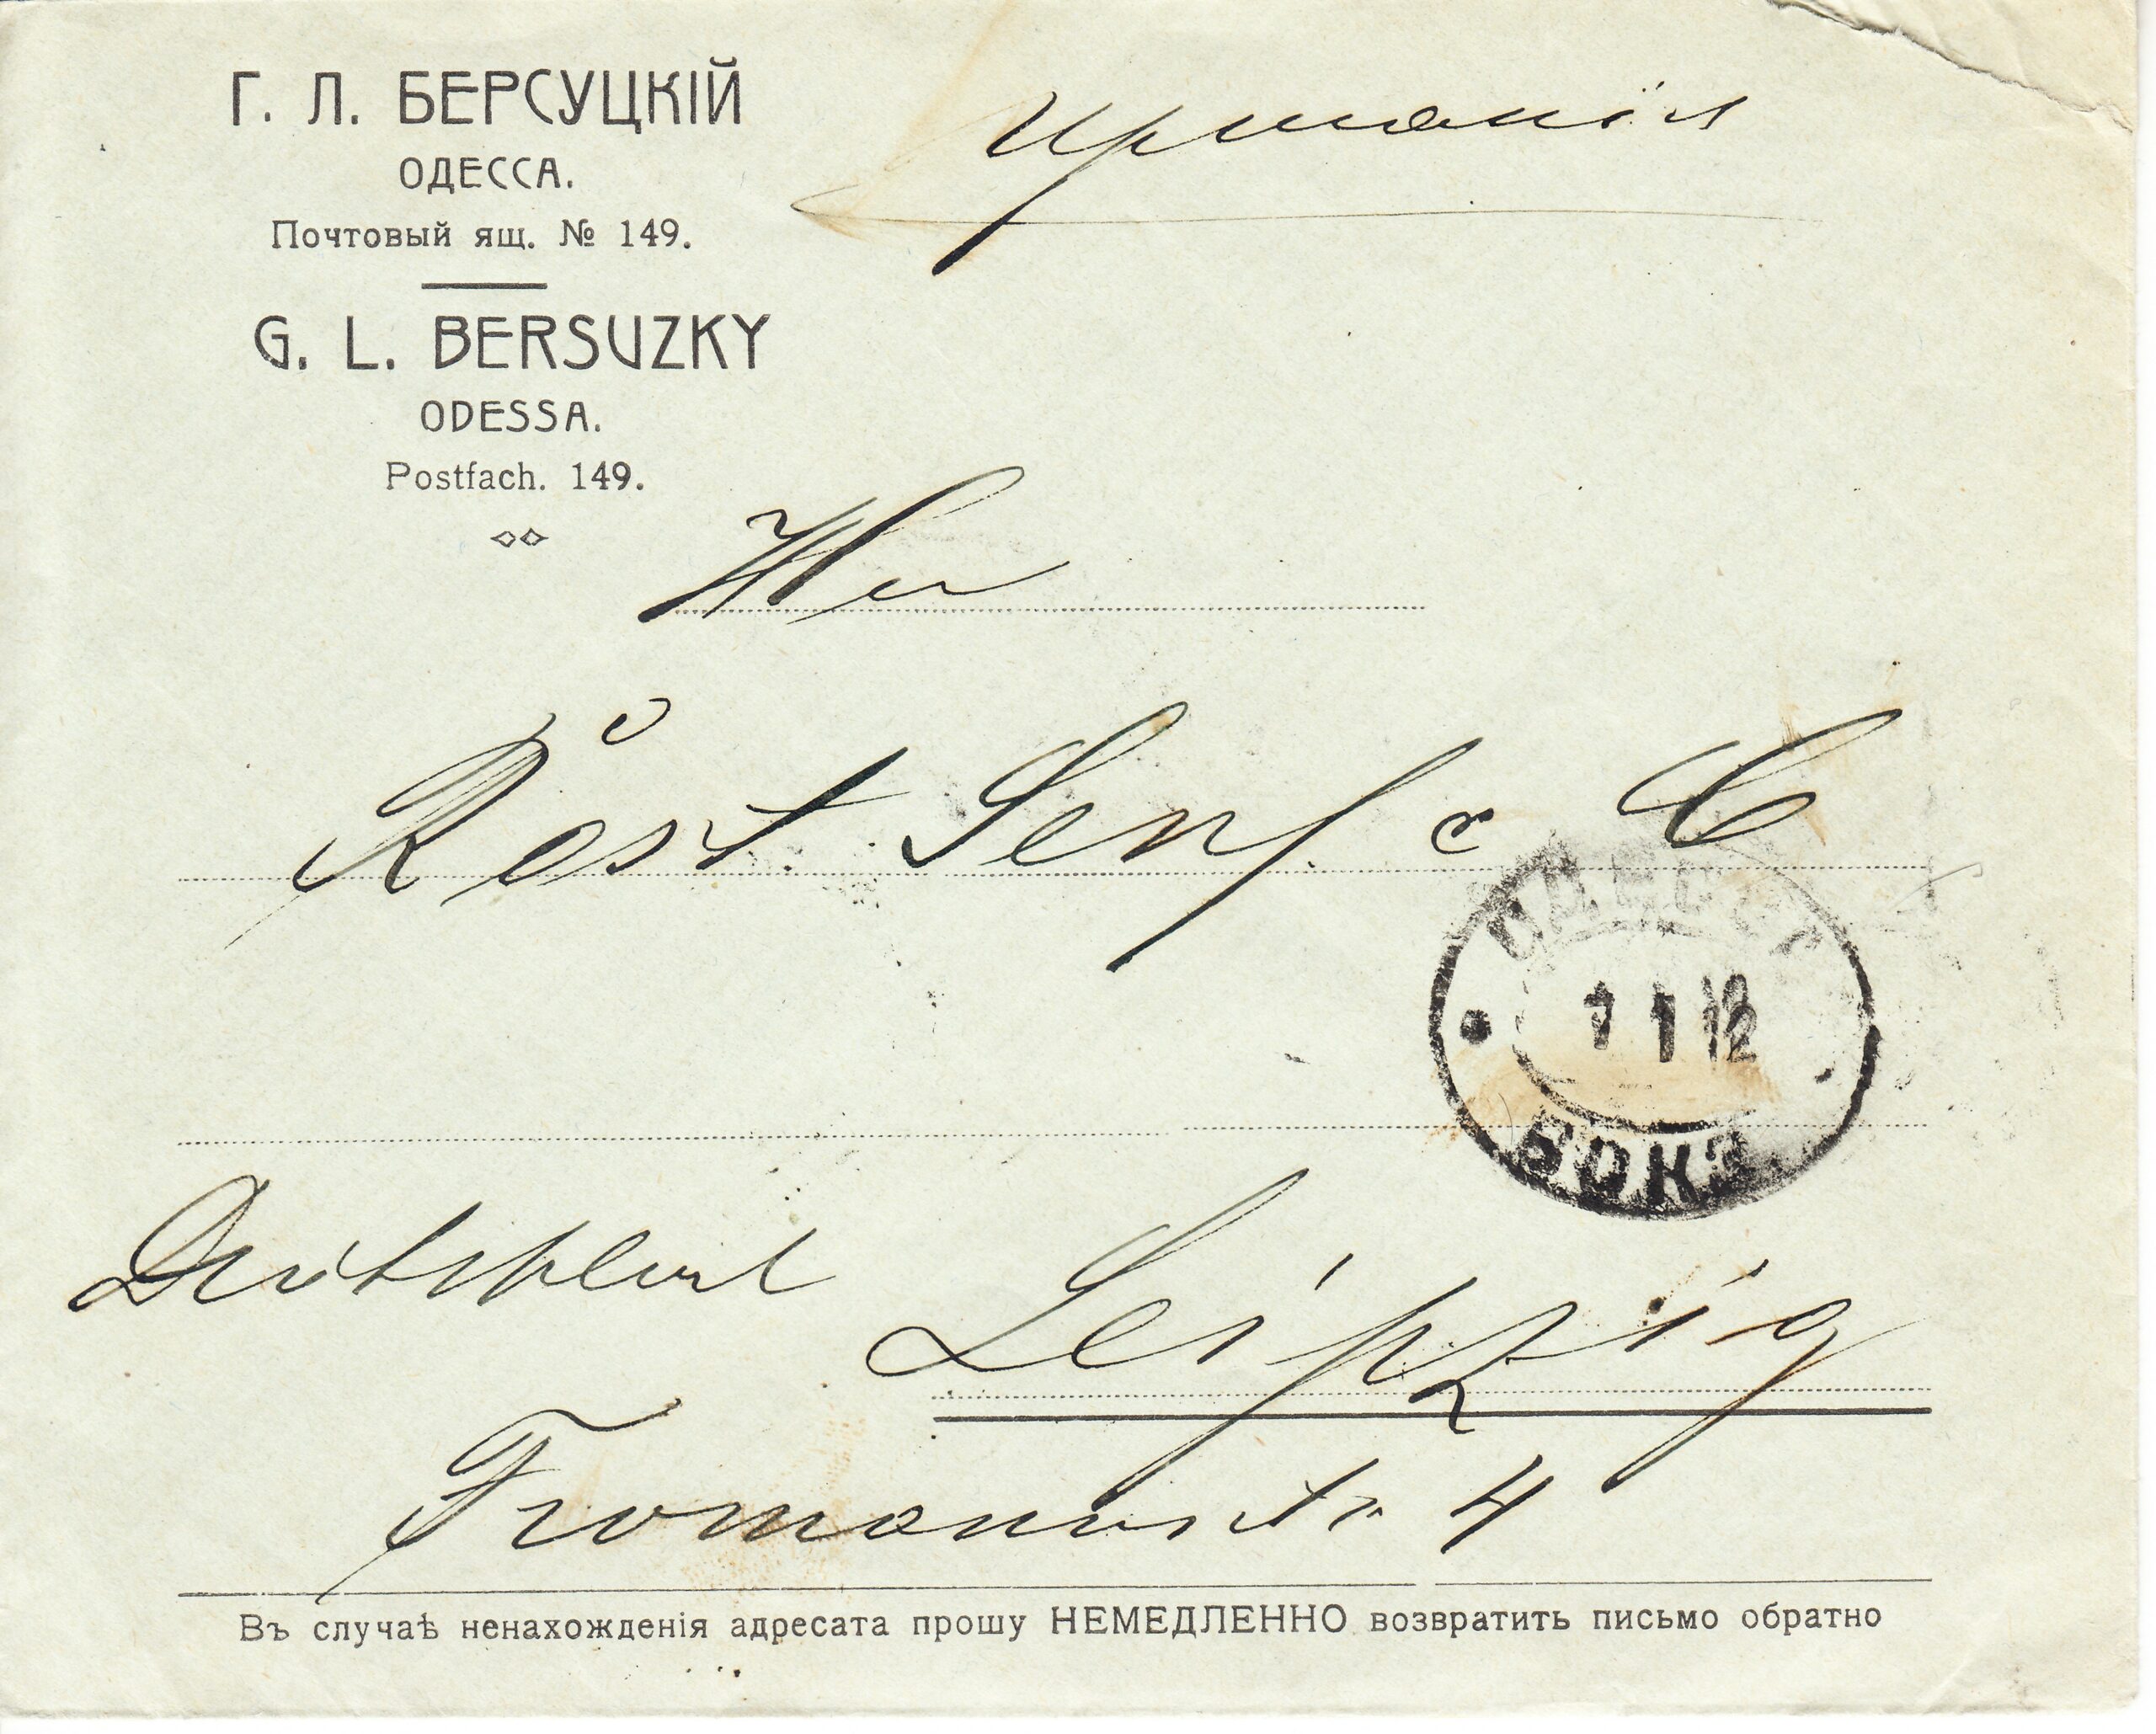 Г. Л. БЕРСУЦКІЙ
ОДЕССА.
Почтовый ящ. № 149.
G. L. BERSUZKY
ODESSA.
Postfach. 149.
Германія
Herr
Röst Senf & C
ОДЕССА
1 12
ВОКЗ.
Deutschland
Leipzig
Fromannstr 4
Въ случаѣ ненахожденія адресата прошу НЕМЕДЛЕННО возвратить письмо обратно